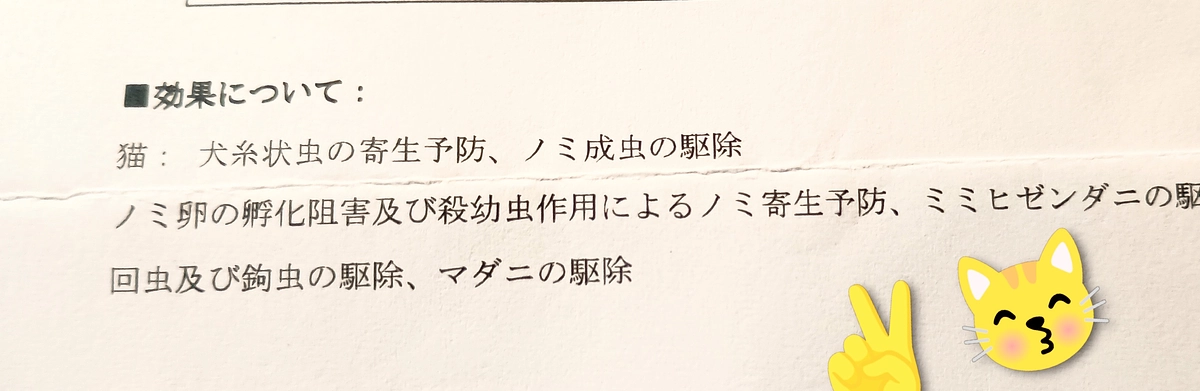 ■効果について：
猫： 犬糸状虫の寄生予防、ノミ成虫の駆除
ノミ卵の孵化阻害及び殺幼虫作用によるノミ寄生予防、ミミヒゼンダニの駆
回虫及び鉤虫の駆除、マダニの駆除